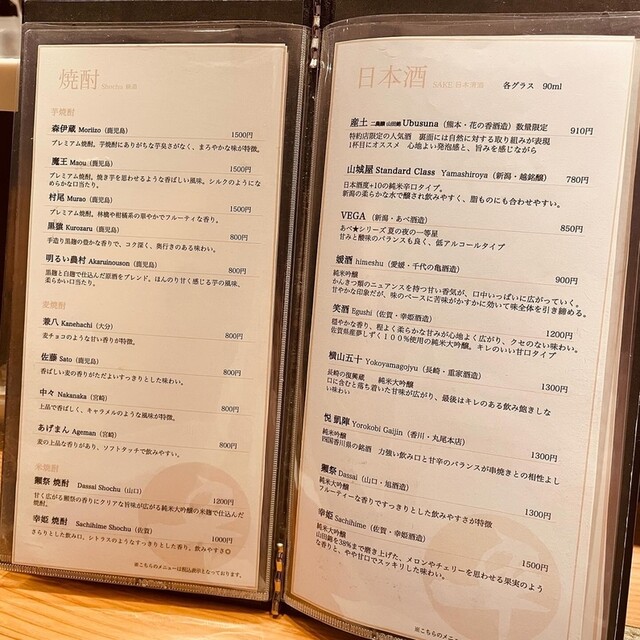 焼酎 Shochu 燒酒
芋焼酎
森伊蔵 Moriizo（鹿児島） 1500円
プレミアム焼酎。芋焼酎にありがちな芋臭さがなく、まろやかな味が特徴。
魔王 Maou（鹿児島） 1500円
プレミアム焼酎。焼き芋を思わせるような香ばしい風味。シルクのようになめらかな口当たり。
村尾 Murao（鹿児島） 1500円
プレミアム焼酎。林檎や柑橘系の華やかでフルーティな香り。
黒猿 Kurozaru（鹿児島） 800円
手造り黒麹の豊かな香りで、コク深く、奥行きのある味わい。
明るい農村 Akaruinouson（鹿児島） 800円
黒麹と白麹で仕込んだ原酒をブレンド。ほんのり甘く感じる芋の風味、柔らかい口当たり。
麦焼酎
兼八 Kanehachi（大分） 800円
麦チョコのような甘い香りが特徴。
佐藤 Sato（鹿児島） 800円
香ばしい麦の香りがただよいすっきりとした味わい。
中々 Nakanaka（宮崎） 800円
上品で香ばしく、キャラメルのような風味が特徴。
あげまん Ageman（宮崎） 800円
麦の上品な香りがあり、ソフトタッチで飲みやすい。
米焼酎
獺祭 焼酎 Dassai Shochu（山口） 1200円
甘く広がる獺祭の香りにクリアな旨味が広がる純米大吟醸の米麹で仕込んだ焼酎。
幸姫 焼酎 Sachihime Shochu（佐賀） 1000円
さらりとした飲み口、シトラスのようなすっきりとした香り。飲みやすさ◎
※こちらのメニューは税込表示となっております。
日本酒 SAKE 日本清酒 各グラス 90ml
産土 二農醸 山田錦 Ubusuna（熊本・花の香酒造）数量限定 910円
特約店限定の人気酒 裏面には自然に対する取り組みが表現
1杯目にオススメ 心地よい発泡感と、旨みを感じながら
山城屋 Standard Class Yamashiroya（新潟・越銘醸） 780円
日本酒度+10の純米辛口タイプ。
新潟の柔らかな水で醸され飲みやすく、脂ものにも合わせやすい。
VEGA（新潟・あべ酒造） 850円
あべ★シリーズ 夏の夜の一等星
甘みと酸味のバランスも良く、低アルコールタイプ
媛酒 himeshu（愛媛・千代の亀酒造） 900円
純米吟醸
かんきつ類のニュアンスを持つ甘い香気が、口中いっぱいに広がっていく。
甘やかな印象だが、味のベースに苦味がかすかに効いて味全体を引き締める。
笑酒 Egushi（佐賀・幸姫酒造） 1200円
穏やかな香り、程よく柔らかな甘みが心地よく広がり、クセのない味わい。
佐賀県産夢しずく100％使用の純米大吟醸。キレのいい甘口タイプ
横山五十 Yokoyamagojyu（長崎・重家酒造） 1300円
長崎の復興蔵 純米大吟醸
口に含むと落ち着いた甘味が広がり、最後はキレのある飲み飽きしない味わい
悦 凱陣 Yorokobi Gaijin（香川・丸尾本店） 1300円
純米吟醸
四国香川県の銘酒 力強い飲み口と甘辛のバランスが串焼きとの相性よし
獺祭 Dassai（山口・旭酒造） 1300円
純米大吟醸
フルーティーな香りですっきりとした飲みやすさが特徴
幸姫 Sachihime（佐賀・幸姫酒造） 1500円
純米大吟醸
山田錦を38%まで磨き上げた、メロンやチェリーを思わせる果実のような香りと、やや甘口でスッキリした味わい。
※こちらのメニュー